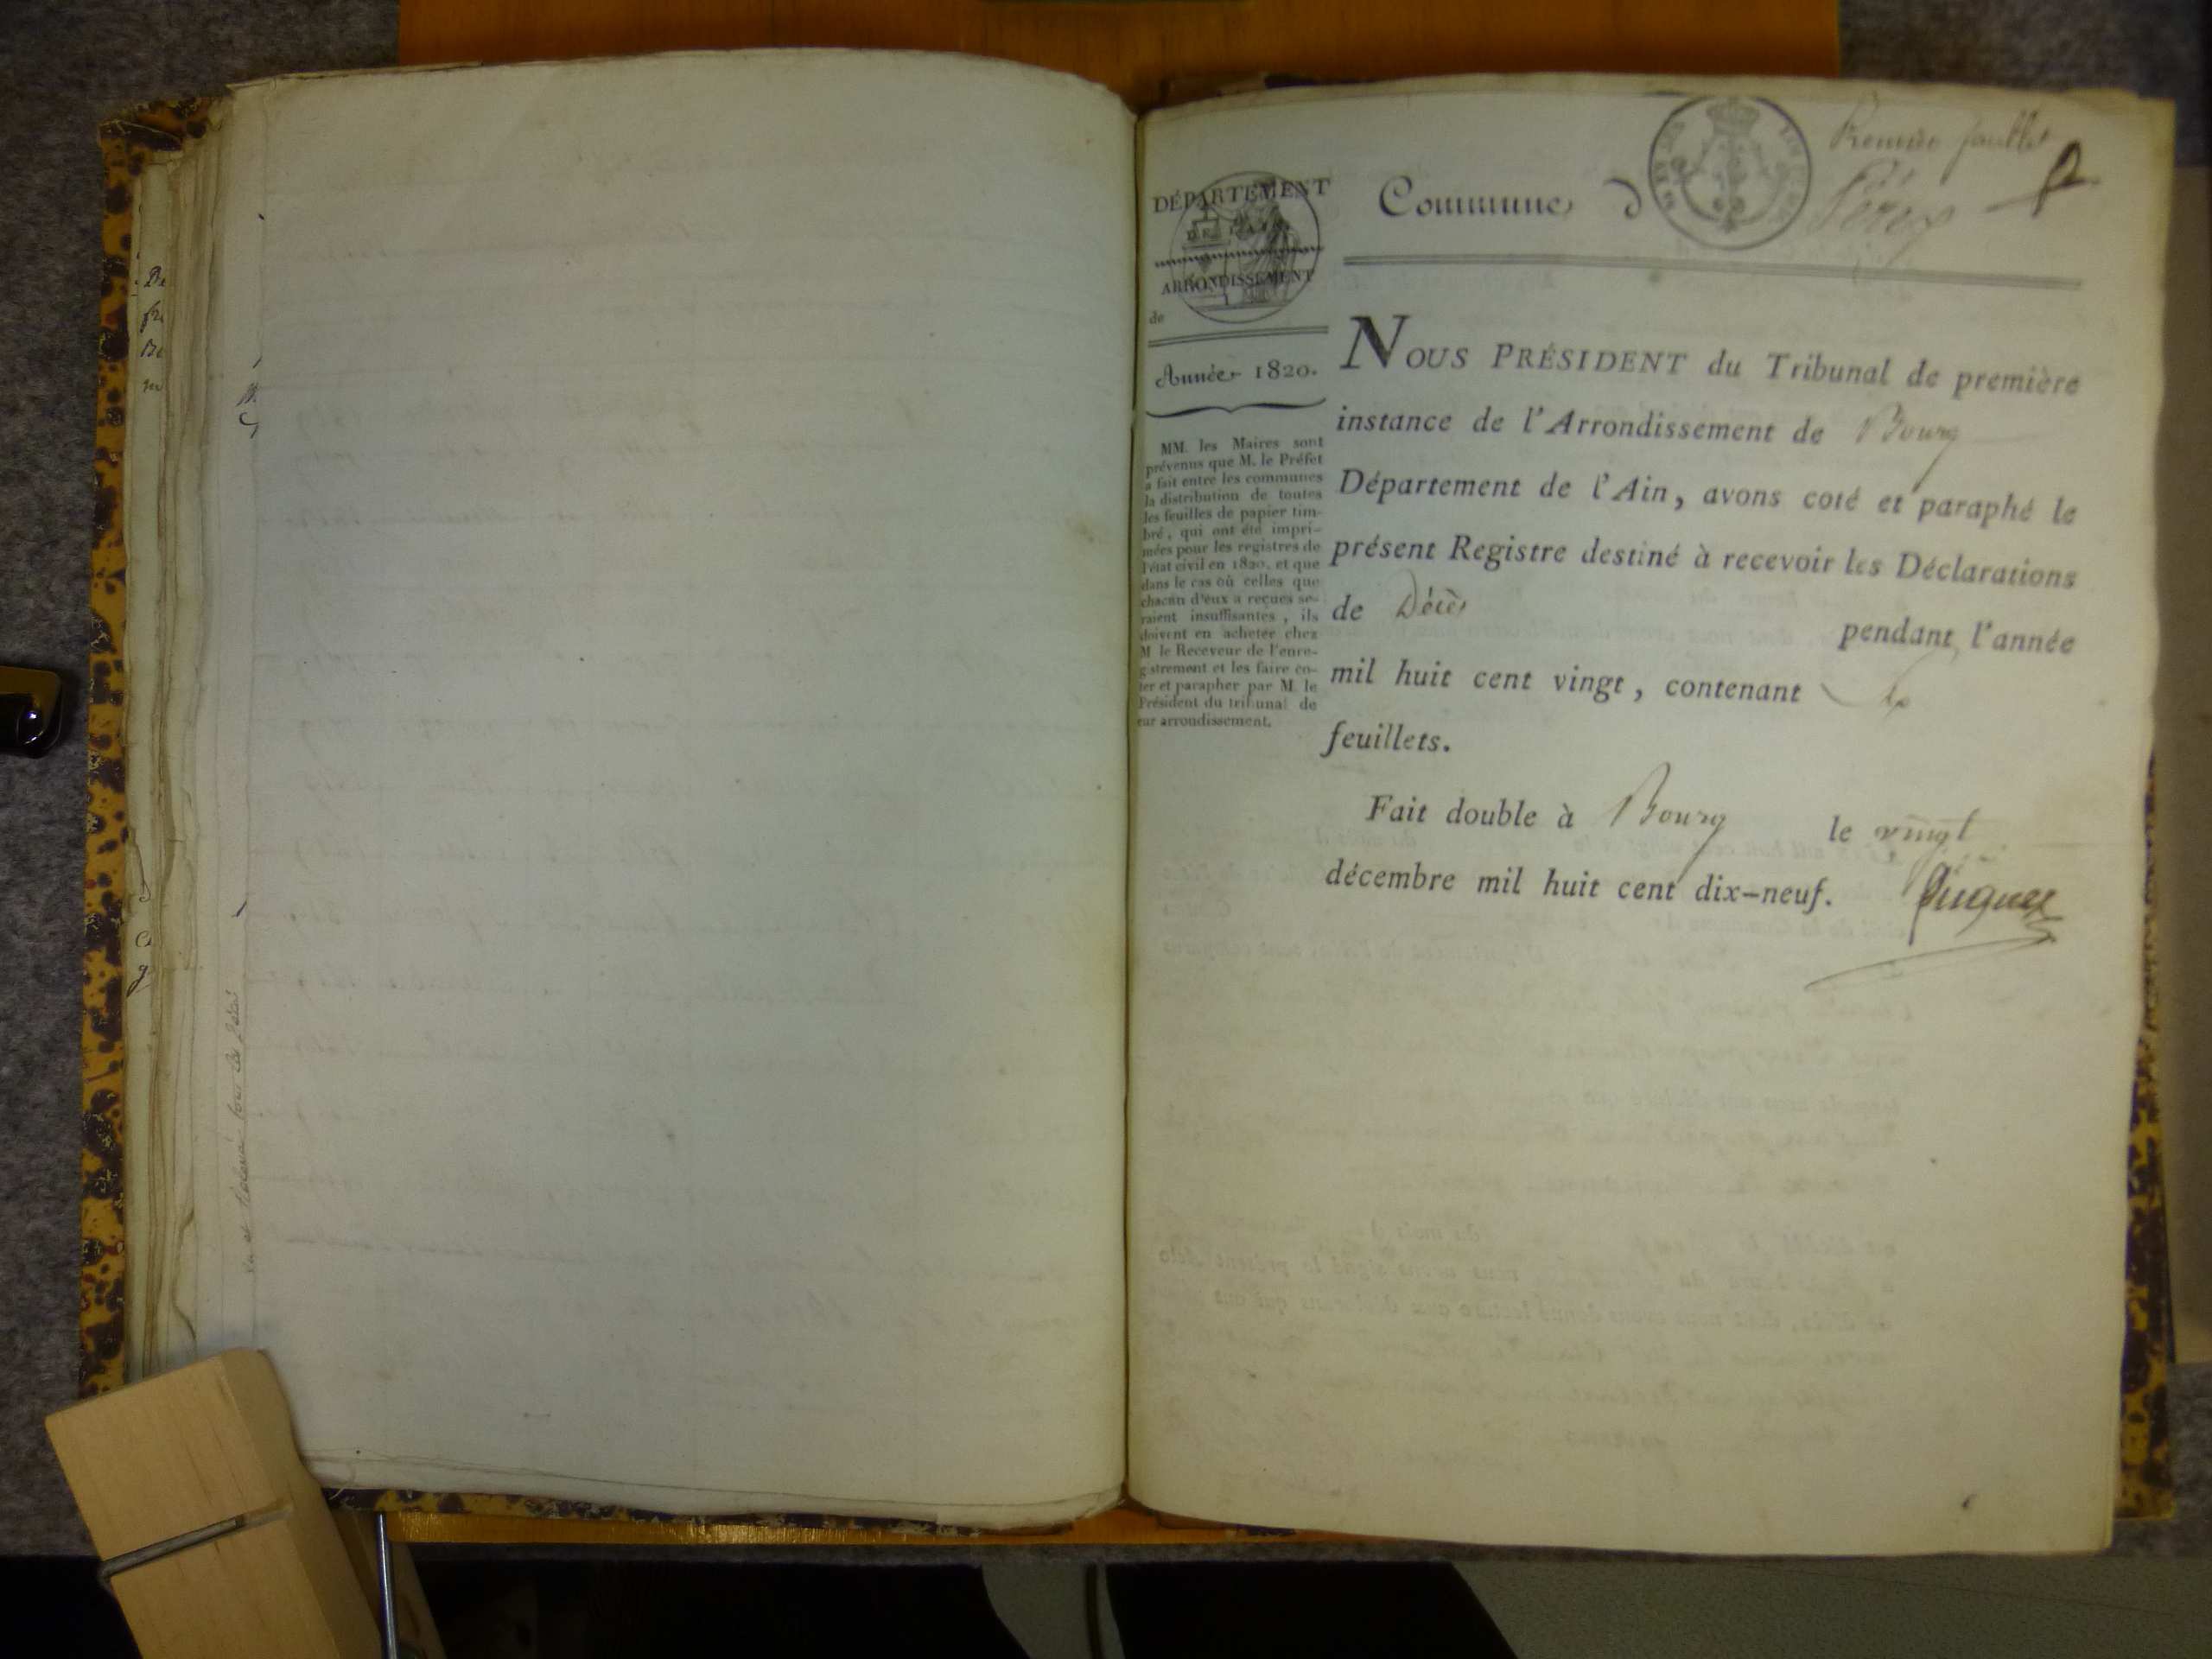 Premier feuillet
DÉPARTEMENT
DE L'AIN
ARRONDISSEMENT
de
Commune d
Année 1820.
MM. les Maires sont
prévenus que M. le Préfet
a fait entre les communes
la distribution de toutes
les feuilles de papier tim-
bré, qui ont été impri-
mées pour les registres de
l'état civil en 1820, et que
dans le cas où celles que
chacun d'eux a reçues se-
raient insuffisantes, ils
doivent en acheter chez
M le Receveur de l'enre-
gistrement et les faire co-
ter et parapher par M. le
Président du tribunal de
eur arrondissement.
NOUS PRÉSIDENT du Tribunal de première
instance de l'Arrondissement de Bourg
Département de l'Ain, avons coté et paraphé le
présent Registre destiné à recevoir les Déclarations
de Décès
pendant l'année
mil huit cent vingt, contenant
feuillets.
Fait double à Bourg le vingt
décembre mil huit cent dix-neuf.